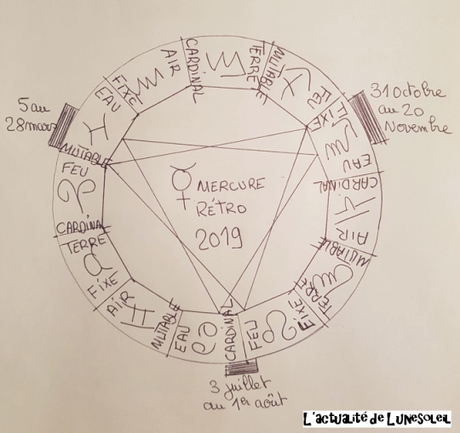 5 au
28 mars
31 octobre
au 20
Novembre
FIXE
AIR
CARDINAL
TERRE
MUTABLE
FEU
FIXE
EAU
CARDINAL
AIR
MUTABLE
TERRE
FIXE
FEU
CARDINAL
EAU
MUTABLE
AIR
FIXE
TERRE
CARDINAL
FEU
MUTABLE
EAU
MERCURE
RÉTRO
2019
3 juillet
au 1er août
L'actualité de LuneSoleil